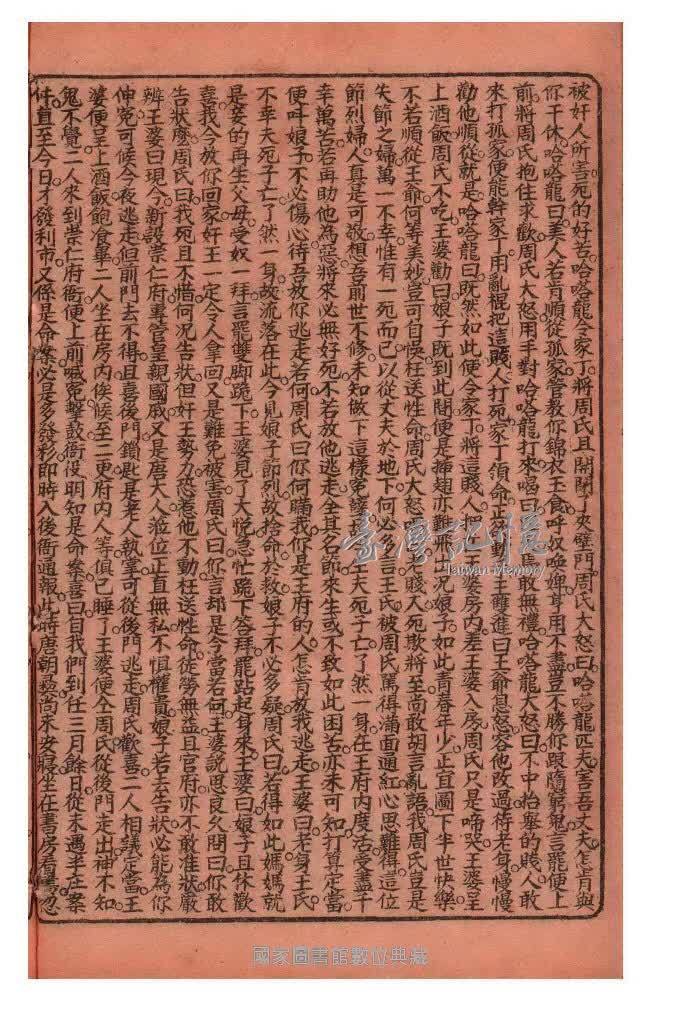 被奸人所害死的好苦哈嗒龍令家丁將周氏且開開了夾璧門周氏大怒曰哈嗒龍匹夫害吾丈夫怎肯與
你干休哈嗒龍曰美人若肯順從孤家管教你錦衣玉食呼奴喚婢身用不盡豈不勝你跟隨窮鬼言罷便上
前將周氏抱住求歡周氏大怒用手對哈嗒龍打來喝曰敢無禮哈嗒龍大怒曰不中抬舉的賤人敢
來打孤家便能幹家丁用亂棍把這賤人打死家丁領命正欲動手王雙進曰王爺息怒容他改過待老身慢慢
勸他順從就是哈嗒龍曰既然如此便令家丁將這賤人押王婆房內差王婆入房周氏只是啼哭王婆呈
上酒飯周氏不吃王婆勸曰娘子既到此間便是插翅亦難飛去况娘子如此青春年少正宜圖下半世快樂
不若順從王爺何等美妙豈可自悞枉送性命周氏大怒曰老賤人死欺將至尚敢胡言亂語我周氏豈是
失節之婦萬一不幸惟有一死而已以從丈夫於地下何必多言王氏被周氏罵得滿面通紅心思難得這位
節烈婦人真是可敬想吾前世不修未知做下這樣冤孽丈夫死子亡了然一身住王府內度活受盡千
幸萬苦若再助他為惡將來必無好死不若放他逃走全其名節來生或不致如此困苦亦未可知打算定當
便呌娘子不必傷心待吾放你逃走若何周氏曰你何瞞我你是王府的人怎肯放我逃走王婆曰老身王氏
不幸夫死子亡了然一身故流落在此今見娘子節烈故捨命於救娘子不必多疑周氏曰若得如此媽媽就
是妾的再生父母受奴一拜言罷雙脚跪下王婆見了大悅急忙跪下答拜罷跕起身來王婆曰娘子且休歡
喜我今放你回家奸王一定令人拿回又是難免被害周氏曰你言却是今當若何王婆說思良久問曰你敢
告狀麼周氏曰我死且不惜何况告狀但奸王勢力恐惹他不動枉送性命徒勞無益且官府亦不敢准狀嚴
辨王婆曰現今新設崇仁府專管皇親國戚又是唐大人蒞位正直無私不惧權貴娘子若去告狀必能為你
伸冤可候今夜逃走但前門去不得且喜後門鎖匙是老人執掌可從後門逃走周氏歡喜二人相議定當王
婆便呈上酒飯飽食畢二人坐在房內俟候至二更府內人等俱已睡了王婆便仝周氏從後門走出神不知
鬼不覺二人來到崇仁府衙便上前喊冤擊鼓衙役明知是命案喜曰自我們到任三月餘日從未遇半庄案
件直至今日才發利市又係是命案必是多發彩即時入後衙通報此時唐朝彞尚未安寢坐在書房看偒忽
臺灣記憶
Taiwan Memory
國家圖書館數位典藏